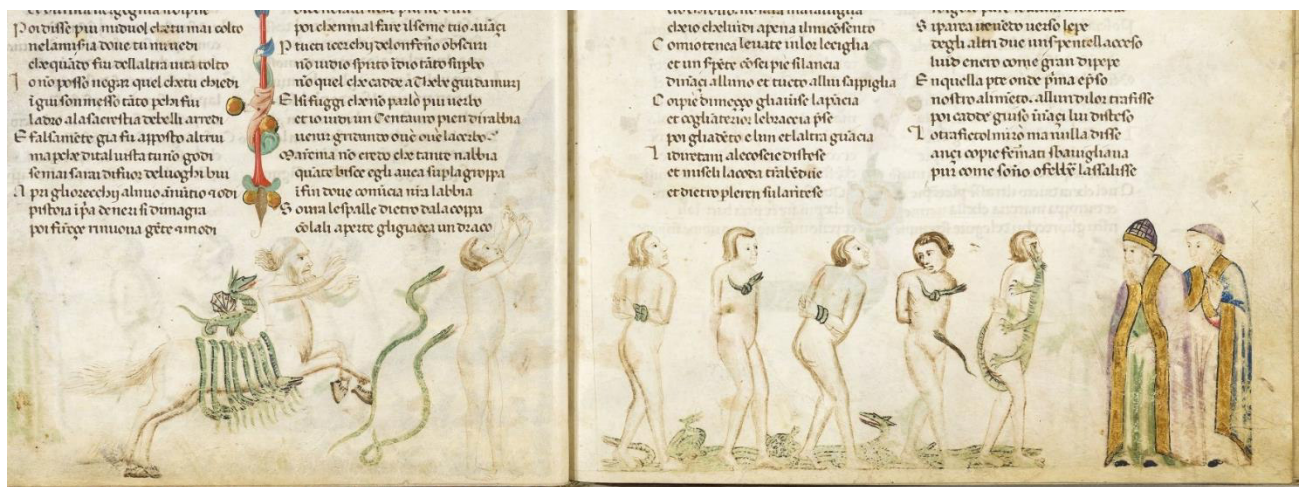 Poi disse piu mi duol chetu mai colto
nelamisia doue tu miuedi
che quādo fui dellaltra uita tolto
I o nō posso negar quel chetu chiedi
ī giu son messo tāto pchi fui
ladro ala sacrestia debelli arredi
E falsamēte gia fu apposto altrui
ma pche dital uista tu nō godi
se mai sarai difuor deluoghi bui
A pri gliorecchij almio ānūtio ⁊ odi
pistoia ī pa deneri si dimagra
poi firēçe rinuoua gēte ⁊ modi
poi chenmal fare ilseme tuo auāçi
P tucti icerchij delonferno obscuri
nō uidio spirto īdio tāto supbo
nō quel che cadde a Thebe giu da muri
E lsi fuggi chenō parlo piu uerbo
et io uidi un Centauro pien dirabbia
uenir gridando oue oue lacerbo.
Marema nō creto che tante nabbia
quāte bisce egli auea supla groppa
ī fin doue comīcia nr̄a labbia
S oura lespalle dietro dala coppa
cōlali aperte gligiacea un draco
cheio cheluidi apena ilmicōsento
C omio tenea leuate inlor leciglia
et un spēte cōsei pie silancia
dināçi alluno et tucto allui sappiglia
C oi pie di meççо gliauīse lapācia
et cogliāterior lebraccia pse
poi gliadēto e lun et laltra guācia
L i diretani alecoscie distese
et miseli lacoda trābedue
et dietro pleren su laritese
S i parea uenēto verso lepe
degli altri due un spentello acceso
liuido enero come gran dipepe
E nquella pte onde pma e pso
nostro alimēto. allun dilor trafisse
poi cadde giuso īnāçi lui disteso
L o trafictol miro ma nulla disse
ançi copie fermati sbauigliaua
pur come sōno o febbr lassalisse